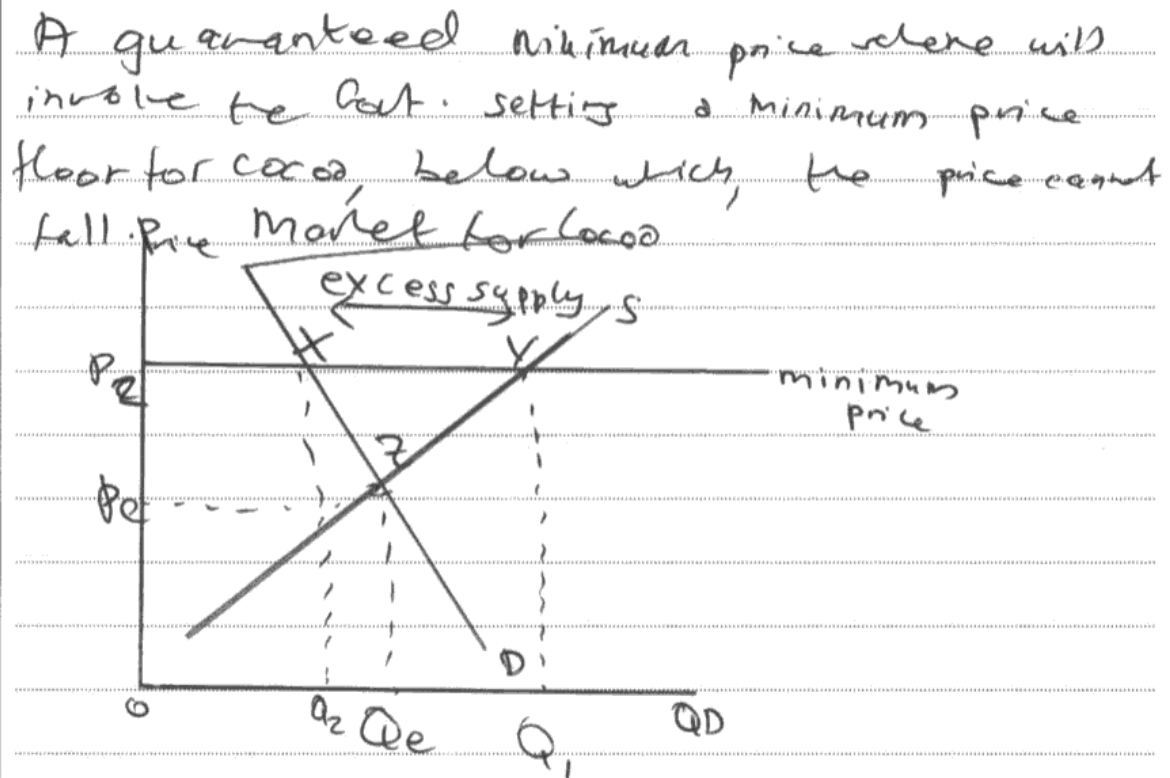 A guaranteed minimum price scheme will
involve the Govt. setting a minimum price
floor for cocoa, below which, the price cannot
fall.
Price Market for Cocoa
excess supply
S
X Y
P2
minimum
price
Z
Pe
D
0 Q2 Qe Q1 QD